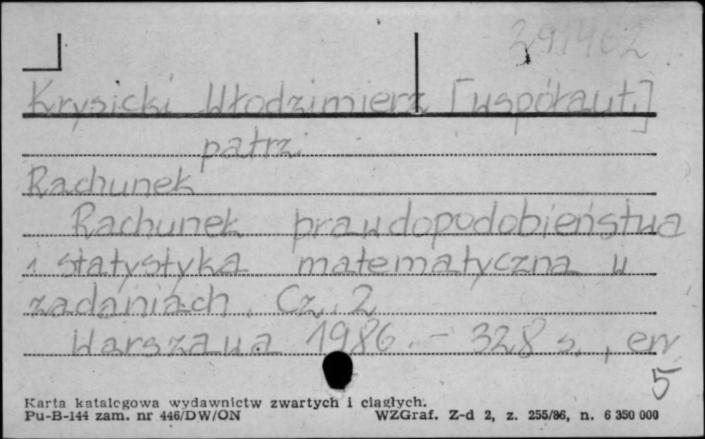 291462
Krysicki Włodzimierz [współaut.]
patrz
Rachunek
Rachunek prawdopodobieństwa
i statystyka matematyczna w
zadaniach. Cz. 2
Warszawa 1986. - 328 s., err.
5
Karta katalogowa wydawnictw zwartych i ciągłych.
Pu-B-144 zam. nr 446/DW/ON WZGraf. Z-d 2, z. 255/86, n. 6 350 000